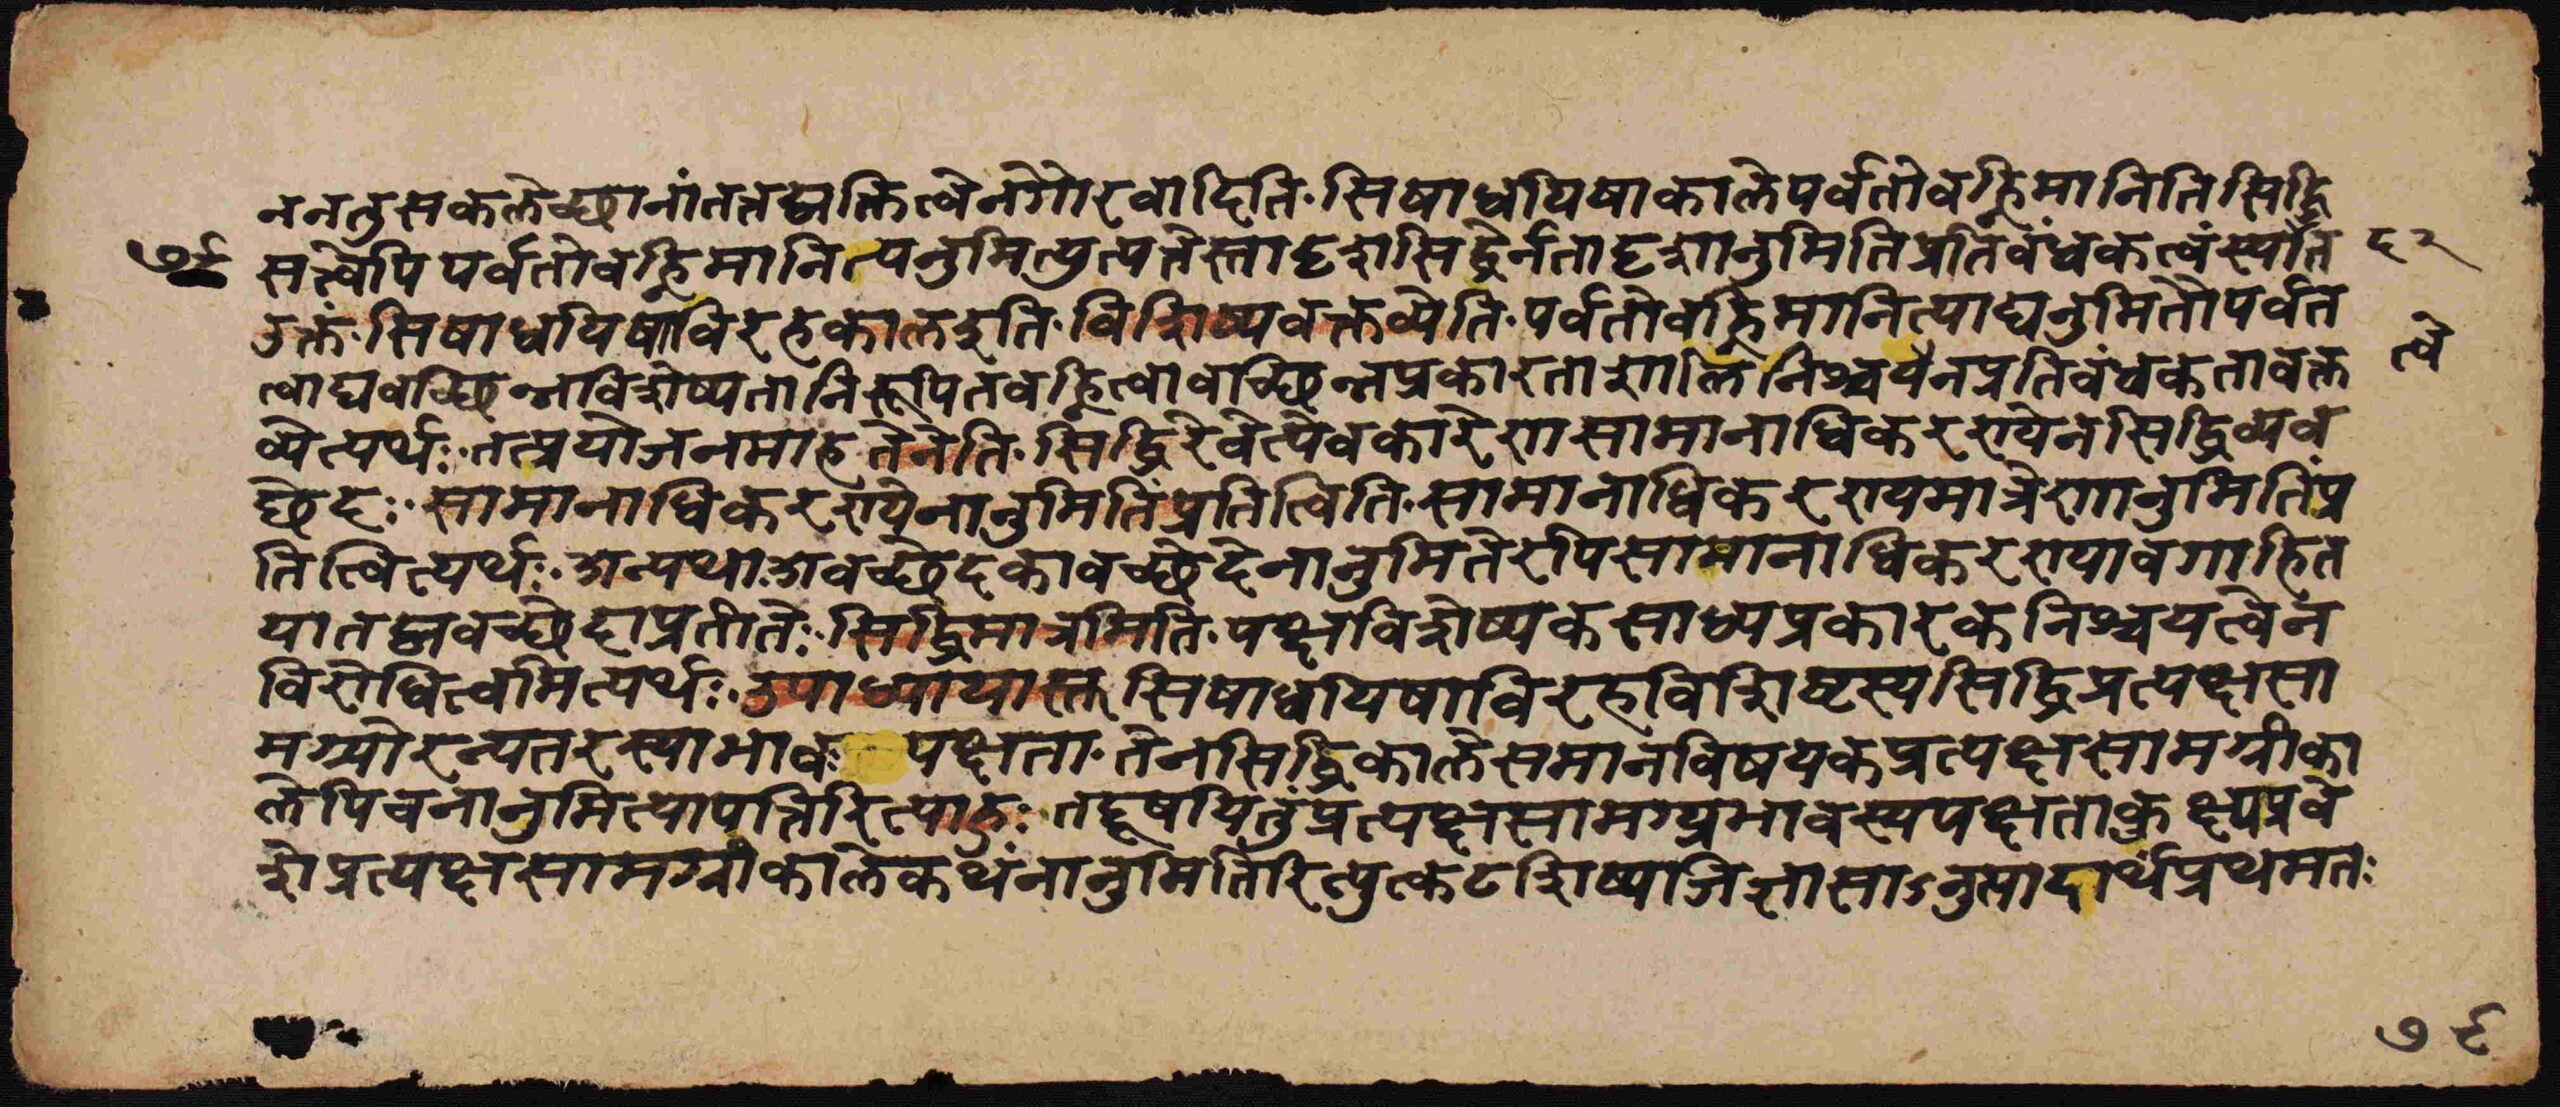 ननतुसकलेच्छानांतत्तद्व्यक्तित्वेनगौरवादिति॰सिषाधयिषाकालेपर्वतोवह्निमानितिसिद्धि
७९ सत्त्वेपिपर्वतोवह्निमानित्यनुमित्युत्पत्तेस्तादृशसिद्धेर्नतादृशानुमितिप्रतिबंधकत्वंस्यात ६२
उक्तं॰सिषाधयिषाविरहकालइति॰विशिष्यवक्तव्येति॰पर्वतोवह्निमानित्याद्यनुमितौपर्वत
त्वाद्यवच्छिन्नविशेष्यतानिरूपितवह्नित्वावच्छिन्नप्रकारताशालिनिश्चयेनप्रतिवंधकतावक्त त्वे
व्येत्यर्थः॰तत्प्रयोजनमाहतेनेति॰सिद्धिरेवेत्येवकारेणसामानाधिकरण्येनसिद्धिव्यव
छेदः॰सामानाधिकरण्येनानुमितिंप्रतित्विति॰सामानाधिकरण्यमात्रेणानुमितिंप्र
तित्वित्यर्थः॰अन्यथाअवच्छेदकावच्छेदेनानुमितेरपिसामानाधिकरण्यावगाहित
यातद्व्यवच्छेदाप्रतीतेः॰सिद्धिमात्रमिति॰पक्षविशेष्यकसाध्यप्रकारकनिश्चयत्वेन
विरोधित्वमित्यर्थः॰उपाध्यायास्तुसिषाधयिषाविरहविशिष्टस्यसिद्धिप्रत्यक्षसा
मग्र्योरन्यतरस्याभावः पक्षता॰तेनसिद्धिकालेसमानविषयकप्रत्यक्षसामग्रीका
लेपिचनानुमित्यापत्तिरित्याहुः॰तद्दूषयितुंप्रत्यक्षसामग्र्यभावस्यपक्षताकुक्ष्यप्रवे
शेप्रत्यक्षसामग्रीकालेकथंनानुमितिरित्युत्कटशिष्यजिज्ञासाऽनुसादार्थंप्रथमतः
७९